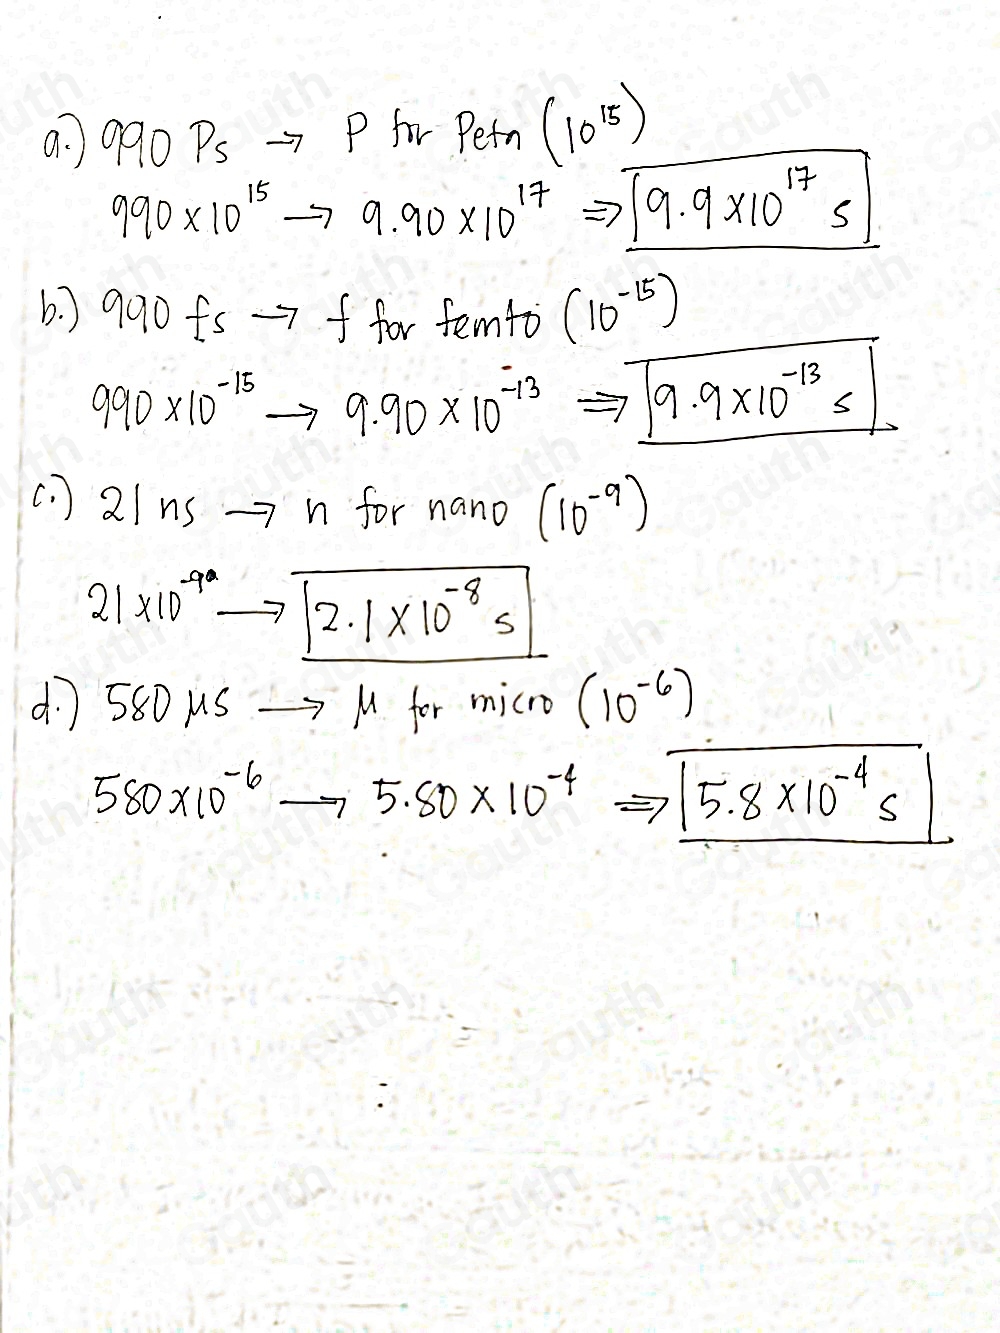 a.) 990 Ps → P for Peta (10¹⁵)
990 x 10¹⁵ → 9.90 x 10¹⁷ ⇒ 9.9 x 10¹⁷ s
b.) 990 fs → f for femto (10⁻¹⁵)
990 x 10⁻¹⁵ → 9.90 x 10⁻¹³ ⇒ 9.9 x 10⁻¹³ s
c.) 21 ns → n for nano (10⁻⁹)
21 x 10⁻⁹ → 2.1 x 10⁻⁸ s
d.) 580 μs → μ for micro (10⁻⁶)
580 x 10⁻⁶ → 5.80 x 10⁻⁴ ⇒ 5.8 x 10⁻⁴ s